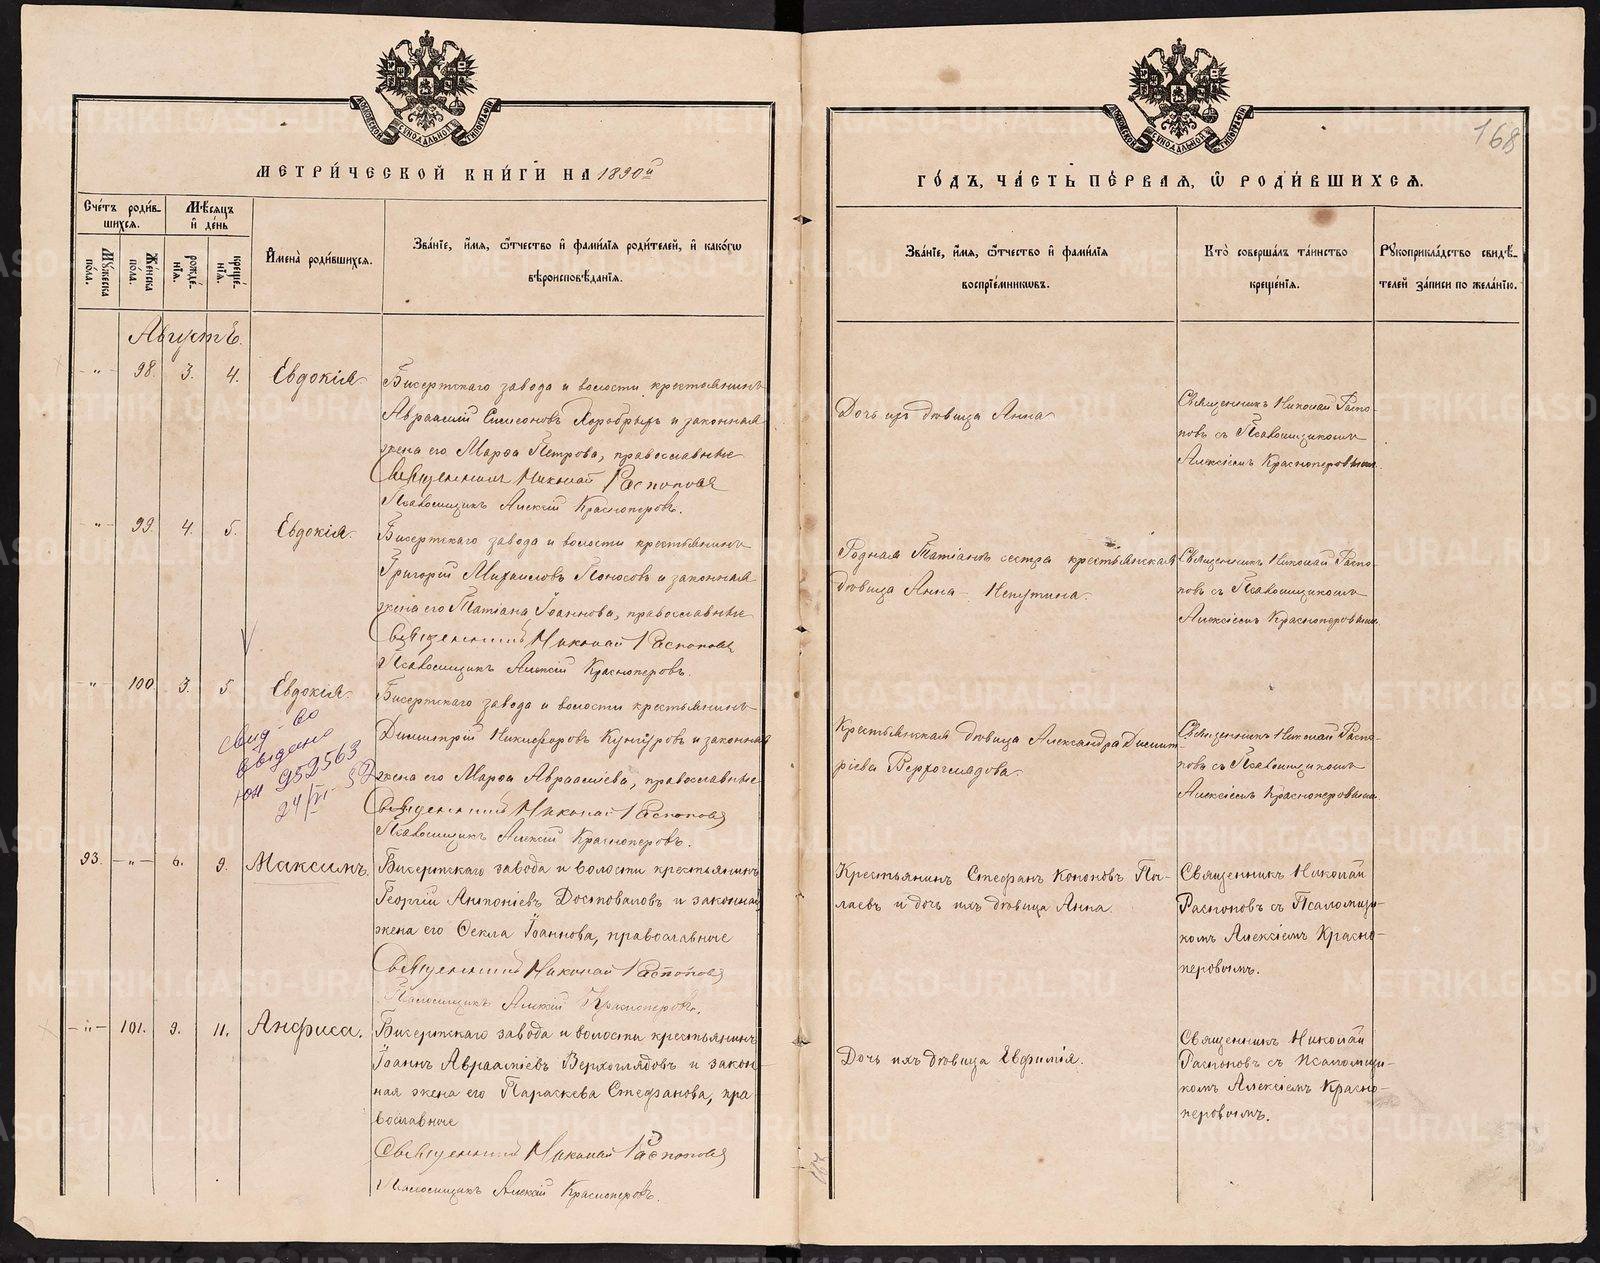 МЕТРИ́ЧЕСКОЙ КНИ́ГИ НА 1890й
Сче́тъ роди́в-
шихсѧ.
Мѣсѧцъ
и҆ де́нь
Мꙋ́жеска
по́ла.
Же́нска
по́ла.
рожде́-
нїѧ.
креще́-
нїѧ.
И҆мена̀ роди́вшихсѧ.
Зва́нїе, и҆́мѧ, ѻ҆́тчество и҆ фами́лїѧ роди́телей, и҆ како́гѡ
вѣроисповѣ́данїѧ.
Августъ.
" 98. 3. 4. Евдокія
Бисертскаго завода и волости крестьянинъ
Авраамій Симеоновъ Хоробрыхъ и законная
жена его Марѳа Петрова, православные
Священникъ Николай Распоповъ
Псаломщикъ Алексій Красноперовъ.
" 99. 4. 5. Евдокія.
Бисертскаго завода и волости крестьянинъ
Григорій Михаиловъ Поносовъ и законная
жена его Татіана Іоаннова, православные
Священникъ Николай Распоповъ
Псаломщикъ Алексій Красноперовъ.
" 100 3. 5. Евдокія.
свид-во
выдано
ЮН 952563
24/VI-
Бисертскаго завода и волости крестьянинъ
Димитрій Никифоровъ Кунгуровъ и законная
жена его Марѳа Авраамiева, православные
Священникъ Николай Распоповъ
Псаломщикъ Алексій Красноперовъ.
93. -"- 6. 9. Максимъ.
Бисертскаго завода и волости крестьянинъ
Георгій Антоніевъ Достоваловъ и законная
жена его Ѳекла Іоаннова, православные
Священникъ Николай Распоповъ
Псаломщикъ Алексій Красноперовъ.
-"- 101. 9. 11. Анфиса.
Бисертскаго завода и волости крестьянинъ
Іоаннъ Авраамiевъ Верхоглядовъ и закон-
ная жена его Параскева Стефанова, пра
вославные
Священникъ Николай Распоповъ
Псаломщикъ Алексій Красноперовъ.
168
ГО́ДЪ, ЧА́СТЬ ПЕ́РВАѦ, Ѽ РОДИ́ВШИХСѦ.
Зва́нїе, и҆́мѧ, ѻ҆́тчество и҆ фами́лїѧ
воспрїе́мникѡвъ.
Кто̀ соверша́лъ та́инство
креще́нїѧ.
Рꙋкоприкла́дство свидѣ́-
телей за́писи по жела́нїю.
Дочь ихъ дѣвица Анна
Священникъ Николай Распо-
повъ съ Псаломщикомъ
Алексіемъ Красноперовымъ.
Родная Татіанѣ сестра крестьянская
дѣвица Анна Непутина.
Священникъ Николай Распо-
повъ съ Псаломщикомъ
Алексіемъ Красноперовымъ.
Крестьянская дѣвица Александра Димит-
ріева Верхоглядова.
Священникъ Николай Распо-
повъ съ Псаломщикомъ
Алексіемъ Красноперовымъ.
Крестьянинъ Стефанъ Кононовъ По-
лаевъ и дочь ихъ дѣвица Анна.
Священникъ Николай
Распоповъ съ Псаломщи-
комъ Алексіемъ Красно-
перовымъ.
Дочь ихъ дѣвица Евфимія.
Священникъ Николай
Распоповъ съ Псаломщи-
комъ Алексіемъ Красно-
перовымъ.
METRIKI.GASO-URAL.RU